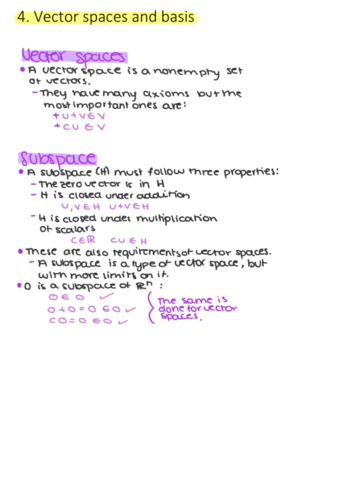 4. Vector spaces and basis
Vector spaces
• A vector space is a nonempty set
of vectors.
- They have many axioms but the
most important ones are:
+ u+v∈V
+ cu ∈ V
Subspace
• A subspace (H) must follow three properties:
- The zero vector is in H
- H is closed under addition
u,v∈H u+v∈H
- H is closed under multiplication
of scalars
c∈ℝ cu∈H
• These are also requirements of vector spaces.
- A subspace is a type of vector space, but
with more limits on it.
• O is a subspace of ℝⁿ :
0 ∈ 0 ✓
0+0=0 ∈0 ✓
c0=0 ∈0 ✓
The same is
done for vector
spaces.